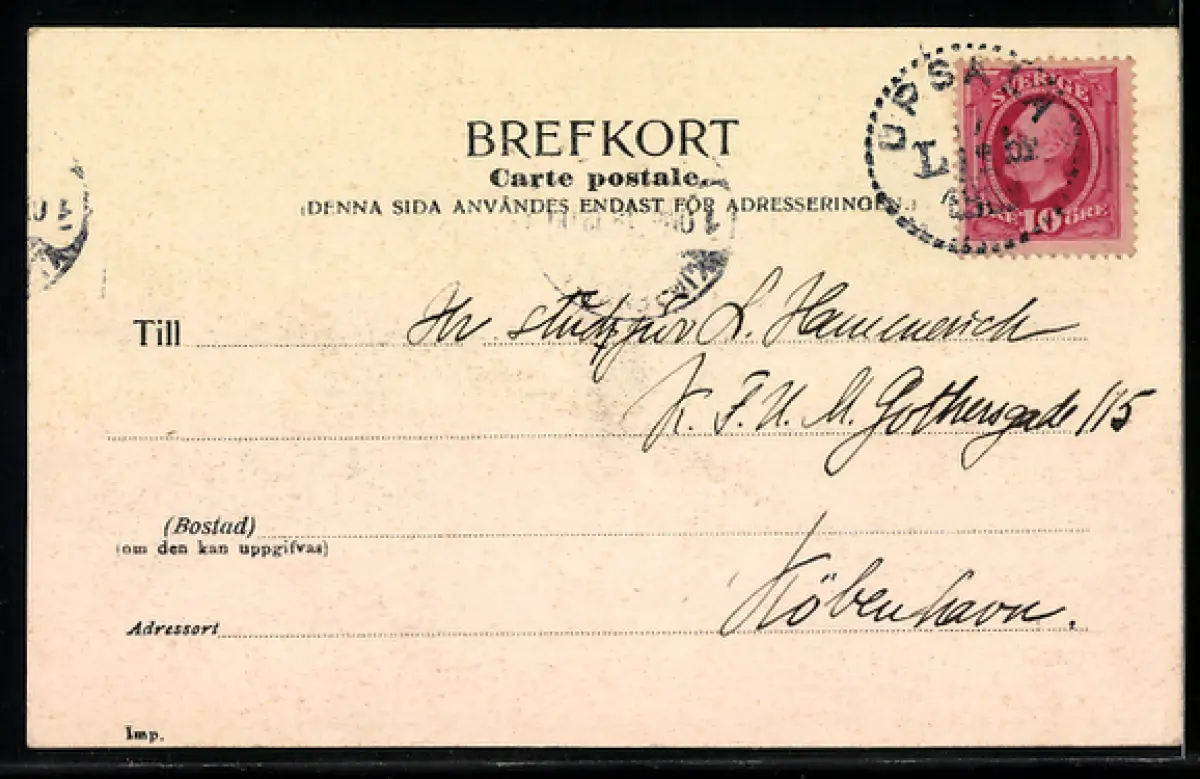 BREFKORT
Carte postale.
(DENNA SIDA ANVÄNDES ENDAST FÖR ADRESSERINGEN.)
UPSALA
SVERIGE
10 ÖRE
Till Hr stud. jur L. Hammerich
K. F. U. M. Gothersgade 115
(Bostad)
(om den kan uppgifvas)
Köbenhavn.
Adressort
Imp.